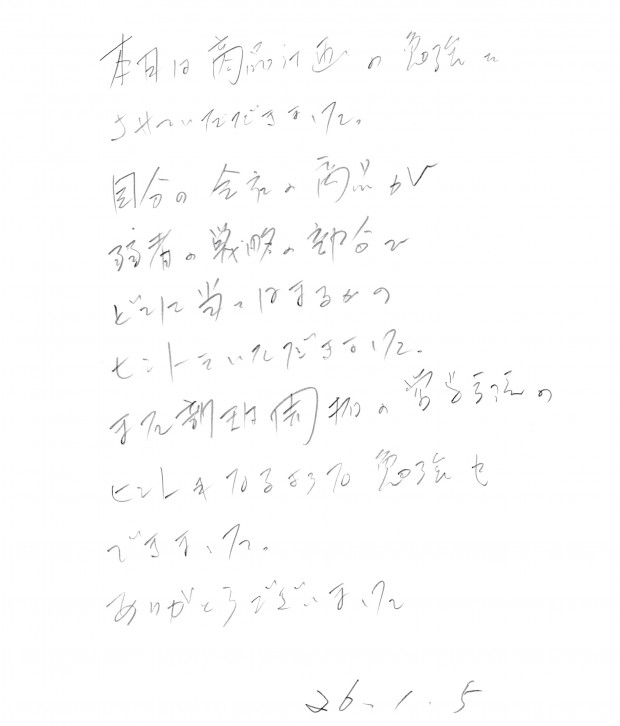 本日は商品計画の勉強を
させていただきました。
自分の会社の商品が
弱者の戦略の割合で
どこに当てはまるかの
ヒントをいただきました。
また新規開拓の営業方法の
ヒントとなるような勉強も
できました。
ありがとうございました
26.1.5